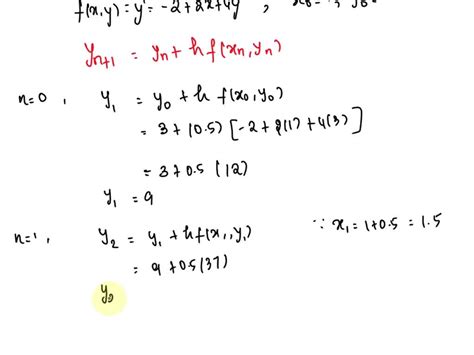 f(x,y) = y' = -2+2x+4y ,
y_{n+1} = y_n + h f(x_n, y_n)
n=0 , y_1 = y_0 + h f(x_0, y_0)
= 3 + (0.5) [-2 + 2(1) + 4(3)]
= 3 + 0.5 (12)
y_1 = 9
n=1 , y_2 = y_1 + h f(x_1, y_1) ∵ x_1 = 1 + 0.5 = 1.5
= 9 + 0.5 (37)
y_2